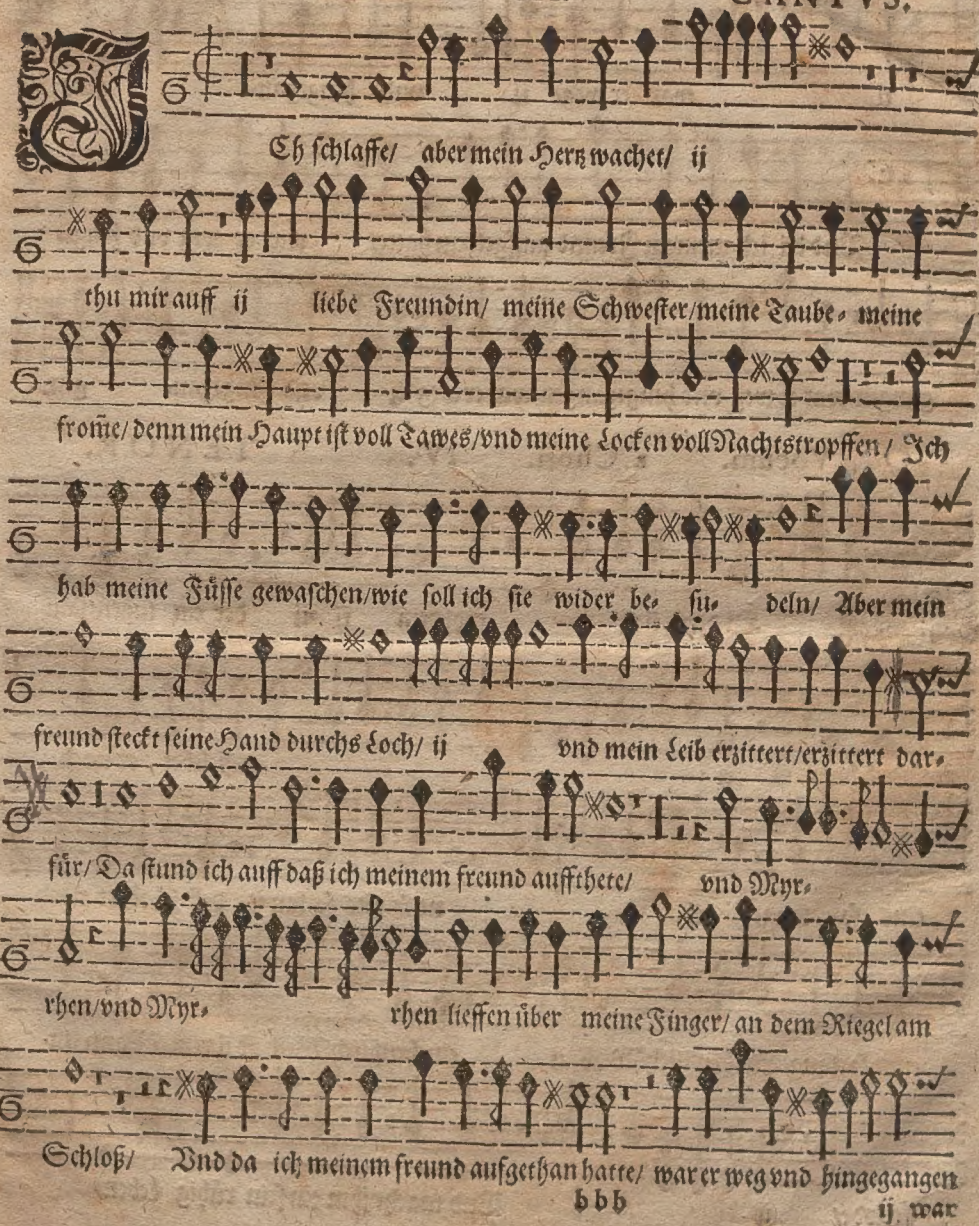 CANTVS.
ICh schlaffe/ aber mein Hertz wachet/ ij
thu mir auff ij liebe Freundin/ meine Schwester/meine Taube- meine
from̃e/ denn mein Haupt ist voll Tawes/vnd meine Locken voll Nachtstropffen/ Ich
hab meine Füsse gewaschen/wie soll ich sie wider be- su- deln/ Aber mein
freund steckt seine Hand durchs Loch/ ij vnd mein Leib erzittert/erzittert dar-
für/ Da stund ich auff daß ich meinem freund auffthete/ vnd Myr-
rhen/vnd Myr- rhen lieffen über meine Finger/ an dem Riegel am
Schloß/ Vnd da ich meinem freund aufgethan hatte/ war er weg vnd hingegangen
bbb ij war